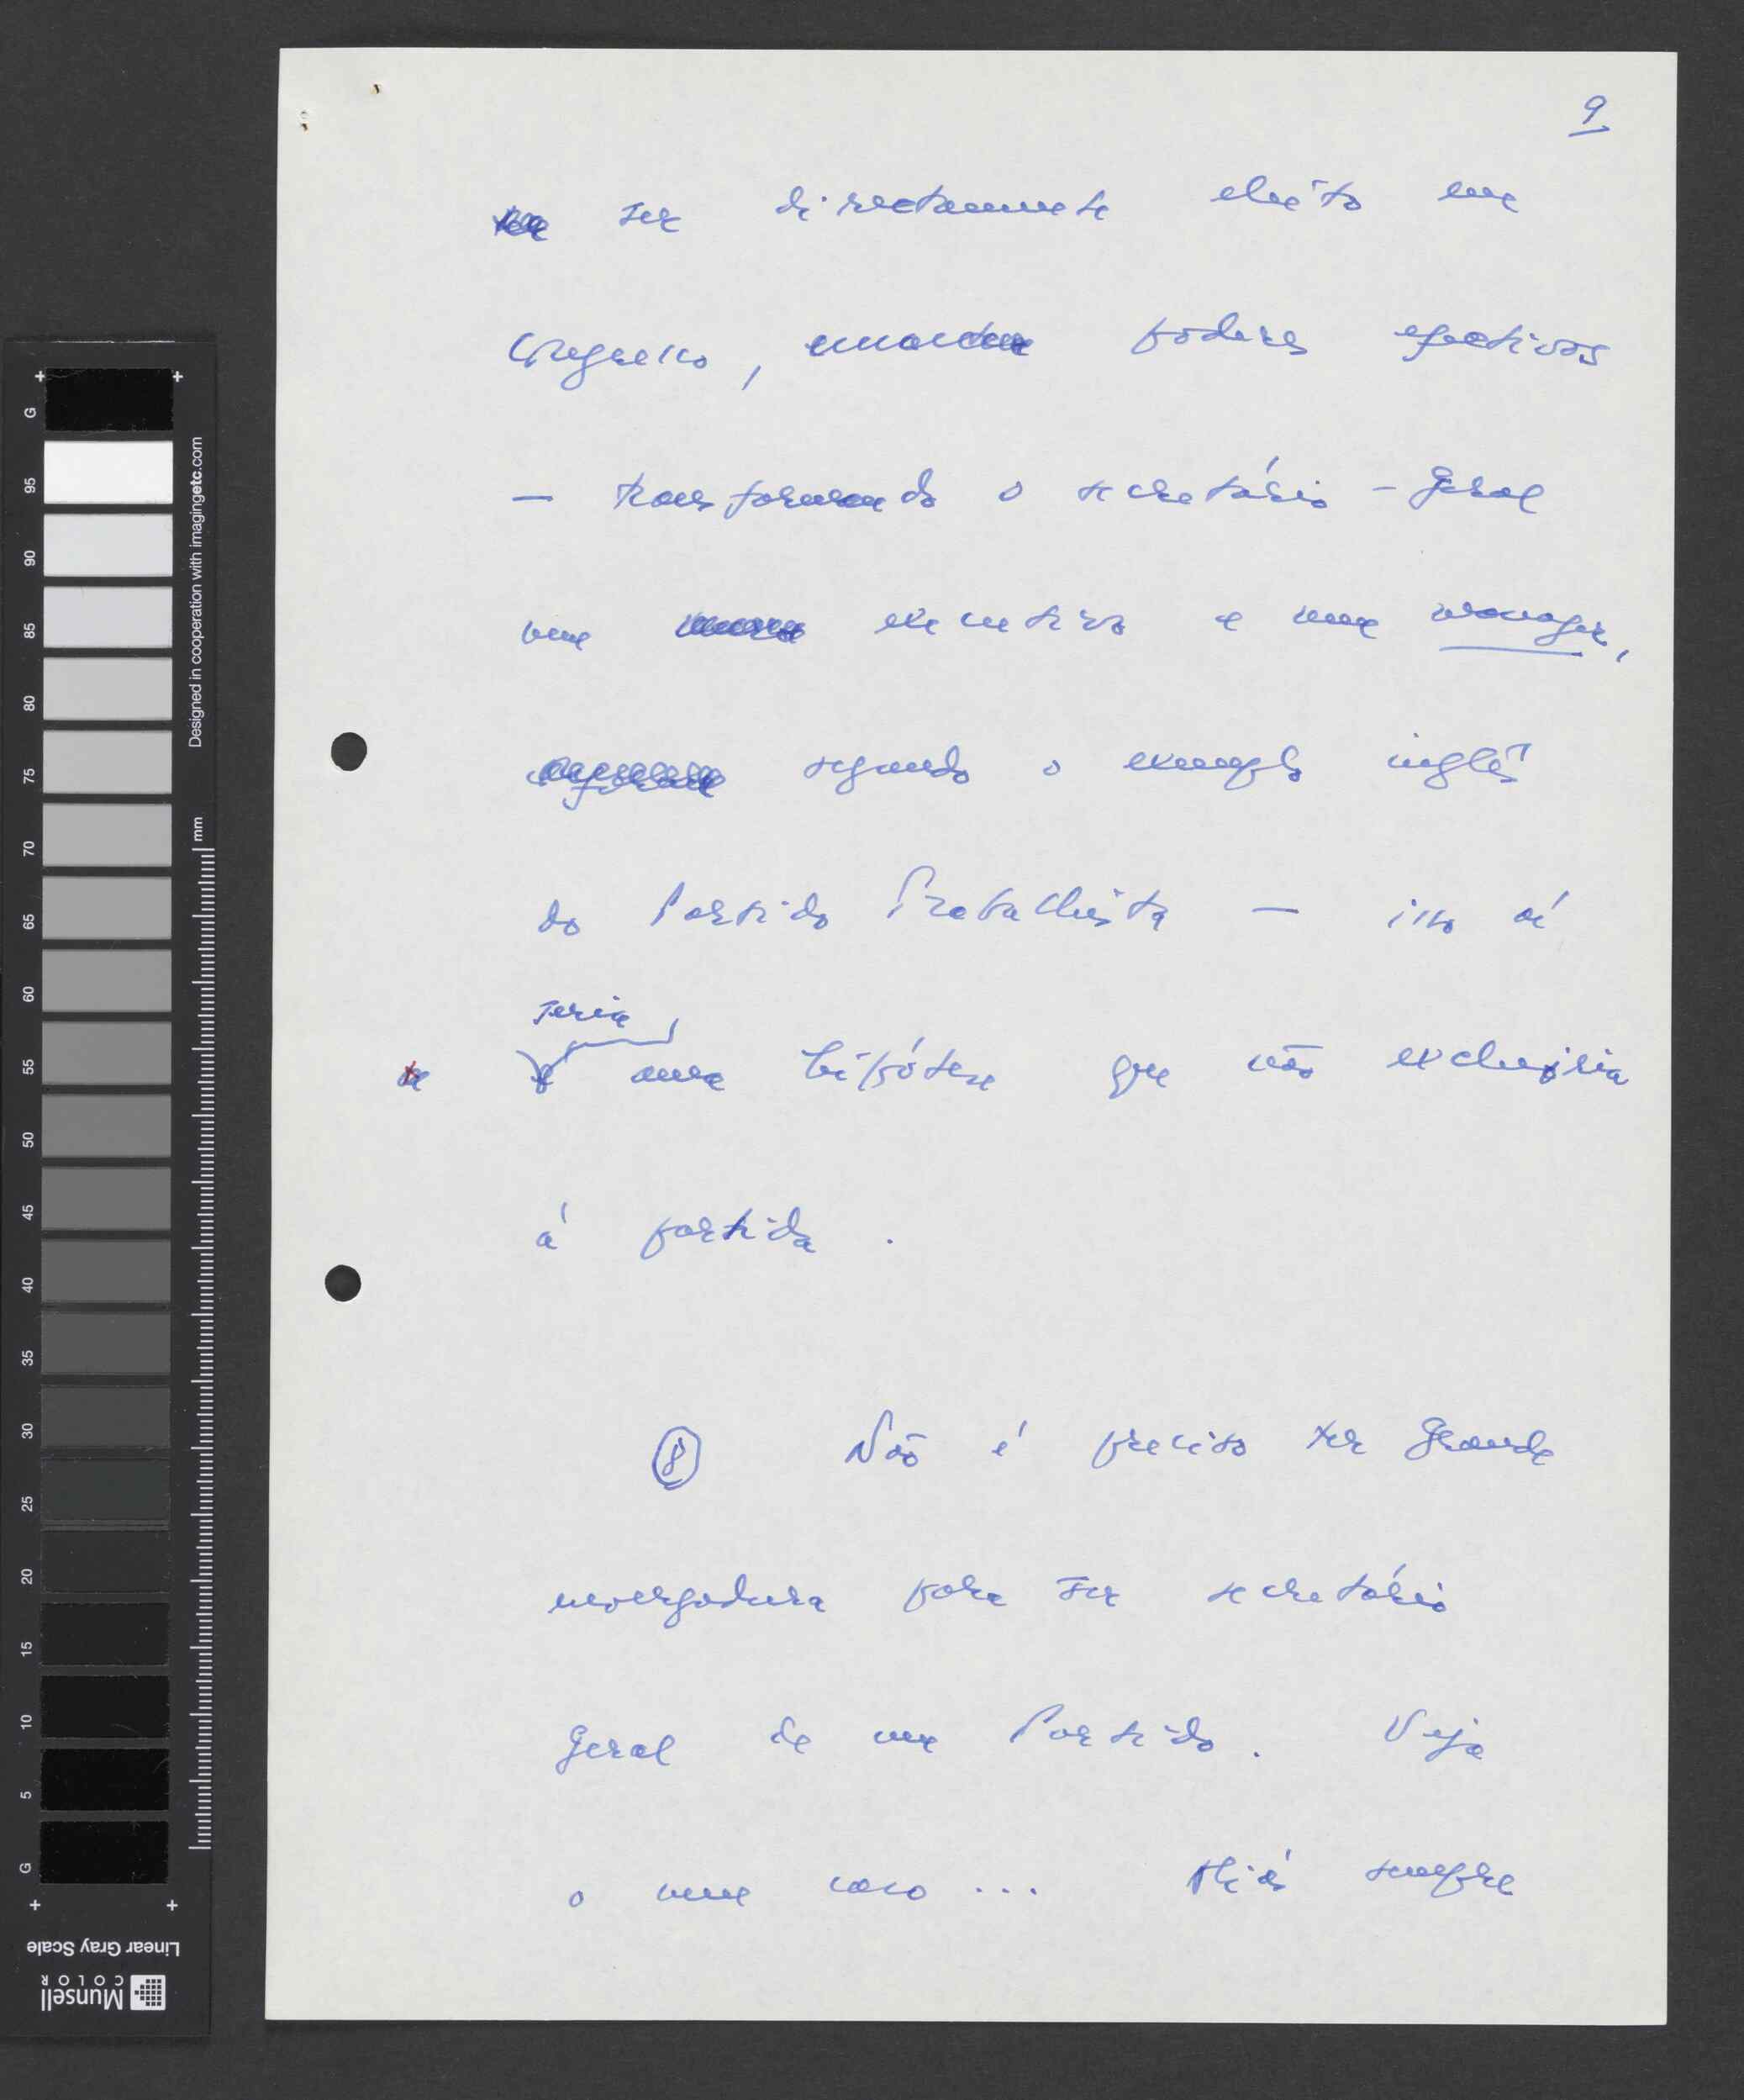 9
ser directamente eleito em
Congresso, poderes efectivos
— transformando o secretário-geral
num executivo e num manager,
segundo o exemplo inglês
do Partido Trabalhista — isso aí
seria
uma hipótese que não excluiria
à partida.
⑧ Não é preciso ter grande
envergadura para ser secretário
geral de um Partido. Veja
o meu caso... Aliás sempre
G
95
90
85
80
75
70
65
60
55
50
45
40
35
30
25
20
15
10
5
G
Designed in cooperation with imagingetc.com
mm
Linear Gray Scale
Munsell
COLOR